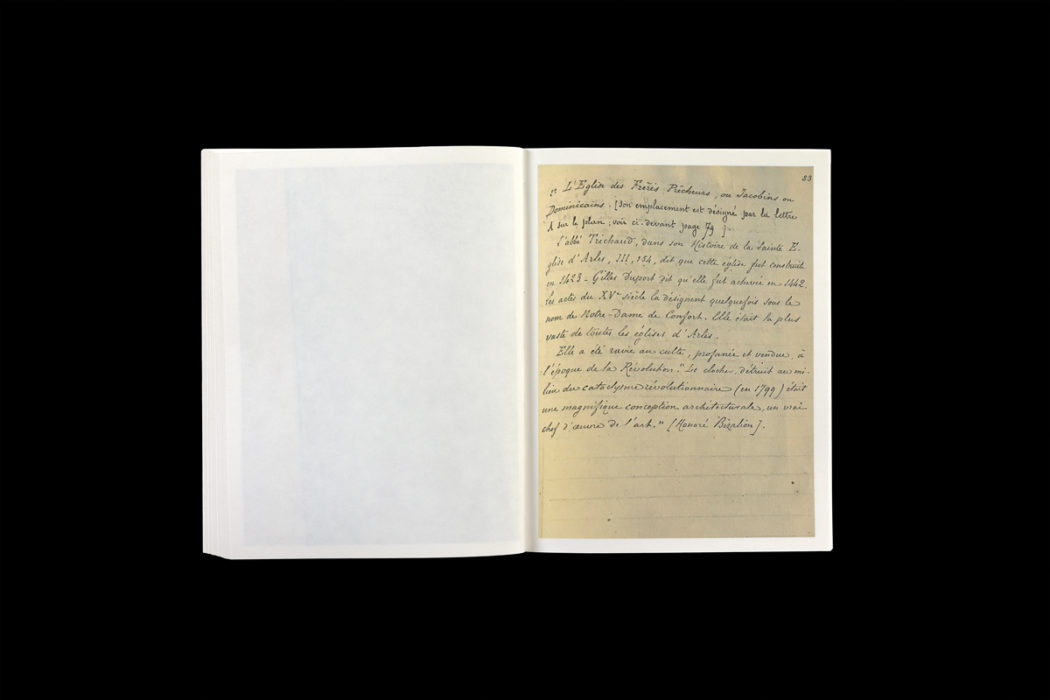 83
L'Eglise des Frères Prêcheurs, ou Jacobins ou
Dominicains. [Son emplacement est désigné par la lettre
A sur le plan; voir ci-devant page 79]
L'abbé Trichaud, dans son Histoire de la Sainte E-
glise d'Arles, III, 154, dit que cette église fut construite
en 1423 - Gilles Duport dit qu'elle fut achevée en 1442.
Les actes du XVe siècle la désignent quelquefois sous le
nom de Notre-Dame de Confort. Elle était la plus
vaste de toutes les églises d'Arles.
Elle a été ravie au culte, profanée et vendue, à
l'époque de la Révolution. "Le clocher, détruit au mi-
lieu du cataclysme révolutionnaire (en 1799) était
une magnifique conception architecturale, un vrai
chef d'œuvre de l'art." [Honoré ].